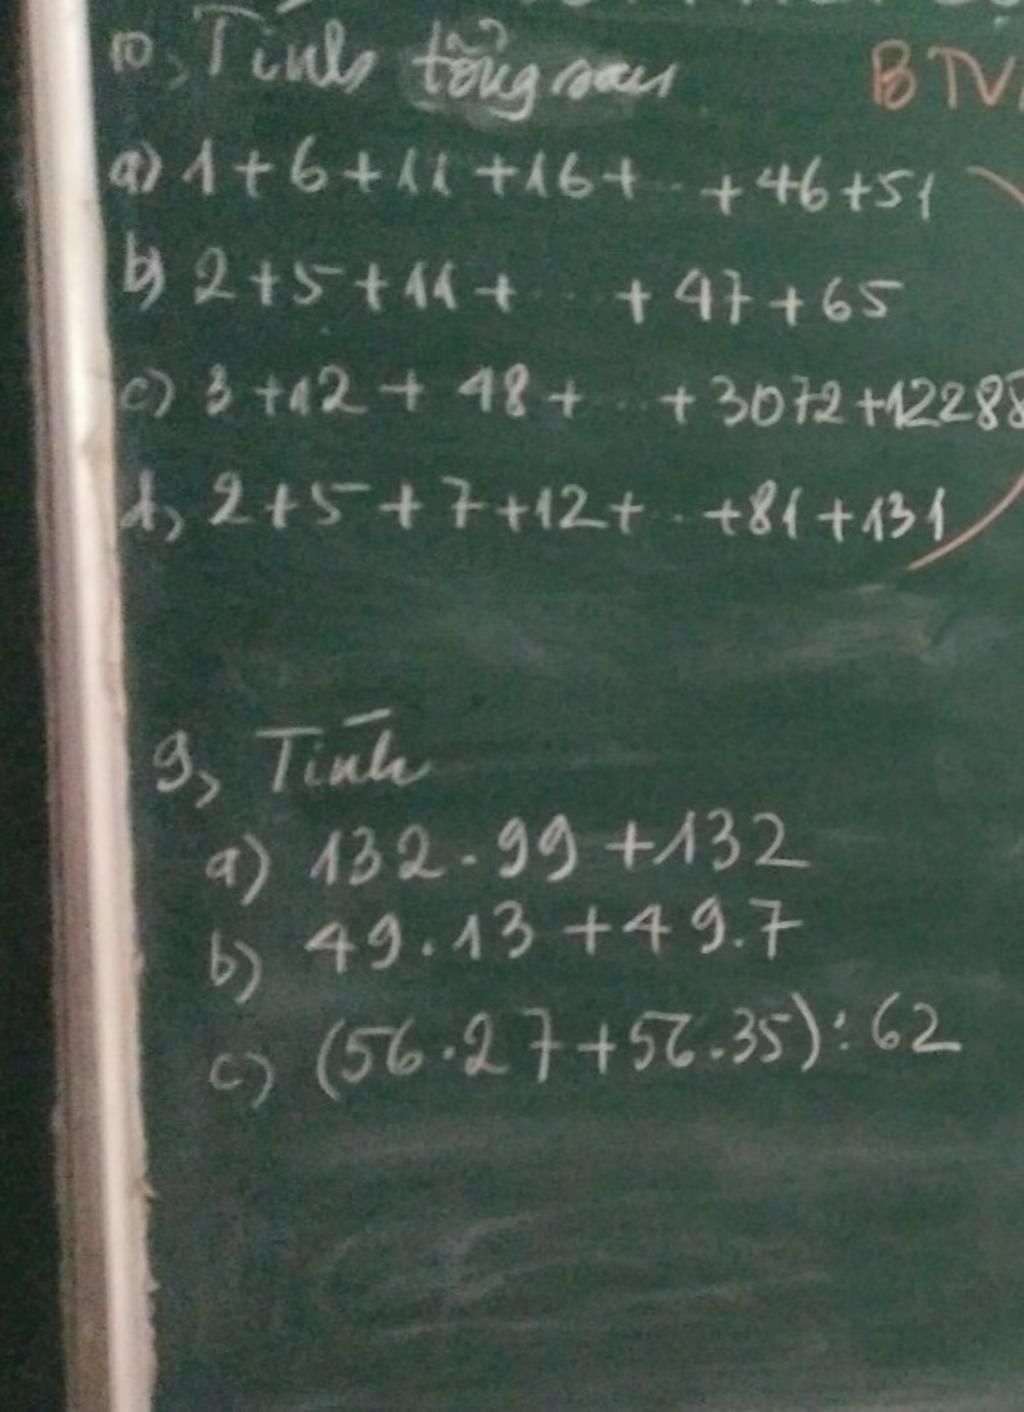 10, Tính tổng sau
BTV
a) 1+6+11+16+..+46+51
b) 2+5+11+...+47+65
c) 3+12+48+...+3072+12288
d, 2+5+7+12+..+81+131
9, Tính
a) 132.99+132
b) 49.13+49.7
c) (56.27+56.35):62